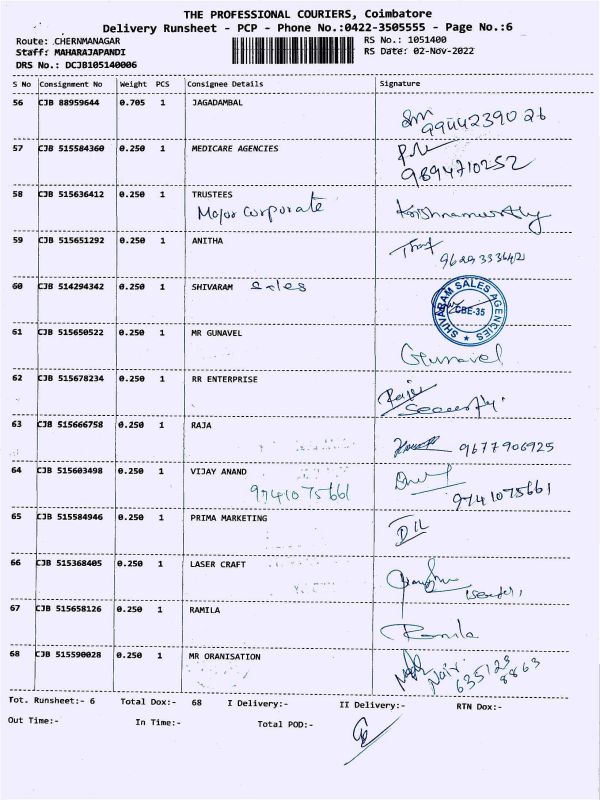 THE PROFESSIONAL COURIERS, Coimbatore
Delivery Runsheet - PCP - Phone No.:0422-3505555 - Page No.:6
Route: CHERNMANAGAR RS No.: 1051400
Staff: MAHARAJAPANDI RS Date: 02-Nov-2022
DRS No.: DCJB105140006
S No Consignment No Weight PCS Consignee Details Signature
56 CJB 88959644 0.705 1 JAGADAMBAL
9944239026
57 CJB 515584360 0.250 1 MEDICARE AGENCIES
9894710252
58 CJB 515636412 0.250 1 TRUSTEES
Major corporate Krishnamurthy
59 CJB 515651292 0.250 1 ANITHA
60 CJB 514294342 0.250 1 SHIVARAM Sales
SHIVARAM SALES AGENCIES
CBE-35
61 CJB 515650522 0.250 1 MR GUNAVEL
Gunavel
62 CJB 515678234 0.250 1 RR ENTERPRISE
Security
63 CJB 515666758 0.250 1 RAJA
9677906925
64 CJB 515603498 0.250 1 VIJAY ANAND
9741075661 9741075661
65 CJB 515584946 0.250 1 PRIMA MARKETING
66 CJB 515368405 0.250 1 LASER CRAFT
67 CJB 515658126 0.250 1 RAMILA
Ramila
68 CJB 515590028 0.250 1 MR ORANISATION
Nair
635129
8863
Tot. Runsheet:- 6 Total Dox:- 68 I Delivery:- II Delivery:- RTN Dox:-
Out Time:- In Time:- Total POD:-